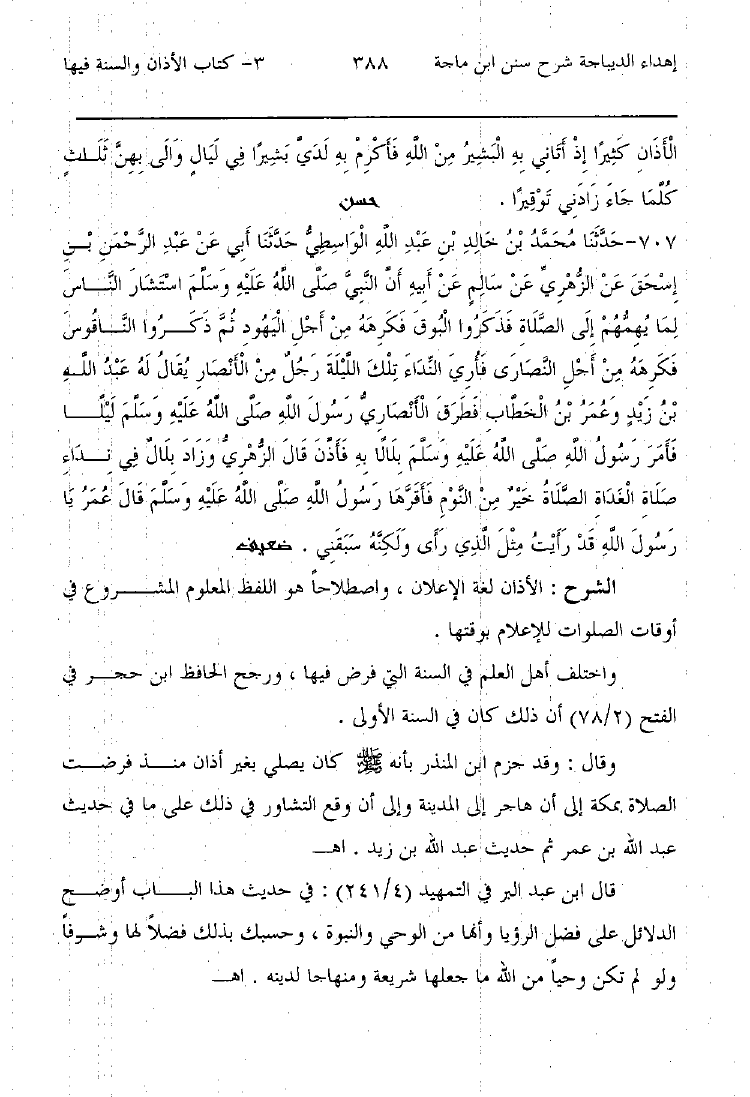 إهداء الديباجة شرح سنن ابن ماجة ٣٨٨ ٣- كتاب الأذان والسنة فيها
الْأَذَانِ كَثِيرًا إِذْ أَتَانِي بِهِ الْبَشِيرُ مِنْ اللَّهِ فَأَكْرِمْ بِهِ لَدَيَّ بَشِيرًا فِي لَيَالٍ وَالَى بِهِنَّ ثَلَـاثٍ
كُلَّمَا جَاءَ زَادَنِي تَوْقِيرًا . حسن
٧٠٧-حَدَّثَنَا مُحَمَّدُ بْنُ خَالِدِ بْنِ عَبْدِ اللَّهِ الْوَاسِطِيُّ حَدَّثَنَا أَبِي عَنْ عَبْدِ الرَّحْمَنِ بْـنِ
إِسْحَقَ عَنْ الزُّهْرِيِّ عَنْ سَالِمٍ عَنْ أَبِيهِ أَنَّ النَّبِيَّ صَلَّى اللَّهُ عَلَيْهِ وَسَلَّمَ اسْتَشَارَ النَّـاسَ
لِمَا يُهِمُّهُمْ إِلَى الصَّلَاةِ فَذَكَرُوا الْبُوقَ فَكَرِهَهُ مِنْ أَجْلِ الْيَهُودِ ثُمَّ ذَكَـرُوا النَّـاقُوسَ
فَكَرِهَهُ مِنْ أَجْلِ النَّصَارَى فَأُرِيَ النِّدَاءَ تِلْكَ اللَّيْلَةَ رَجُلٌ مِنْ الْأَنْصَارِ يُقَالُ لَهُ عَبْدُ اللَّـهِ
بْنُ زَيْدٍ وَعُمَرُ بْنُ الْخَطَّابِ فَطَرَقَ الْأَنْصَارِيُّ رَسُولَ اللَّهِ صَلَّى اللَّهُ عَلَيْهِ وَسَلَّمَ لَيْلًـا
فَأَمَرَ رَسُولُ اللَّهِ صَلَّى اللَّهُ عَلَيْهِ وَسَلَّمَ بِلَالًا بِهِ فَأَذَّنَ قَالَ الزُّهْرِيُّ وَزَادَ بِلَالٌ فِي نِـدَاءِ
صَلَاةِ الْغَدَاةِ الصَّلَاةُ خَيْرٌ مِنْ النَّوْمِ فَأَقَرَّهَا رَسُولُ اللَّهِ صَلَّى اللَّهُ عَلَيْهِ وَسَلَّمَ قَالَ عُمَرُ يَا
رَسُولَ اللَّهِ قَدْ رَأَيْتُ مِثْلَ الَّذِي رَأَى وَلَكِنَّهُ سَبَقَنِي . ضعيف
الشرح : الأذان لغة الإعلان ، واصطلاحاً هو اللفظ المعلوم المشـروع في
أوقات الصلوات للإعلام بوقتها .
واختلف أهل العلم في السنة التي فرض فيها ، ورجح الحافظ ابن حجـر في
الفتح (٧٨/٢) أن ذلك كان في السنة الأولى .
وقال : وقد جزم ابن المنذر بأنه ﷺ كان يصلي بغير أذان منـذ فرضـت
الصلاة بمكة إلى أن هاجر إلى المدينة وإلى أن وقع التشاور في ذلك على ما في حديث
عبد الله بن عمر ثم حديث عبد الله بن زيد . اهـ
قال ابن عبد البر في التمهيد (٢٤١/٤) : في حديث هذا البـاب أوضـح
الدلائل على فضل الرؤيا وأنها من الوحي والنبوة ، وحسبك بذلك فضلاً لها وشـرفاً
ولو لم تكن وحياً من الله ما جعلها شريعة ومنهاجا لدينه . اهـ